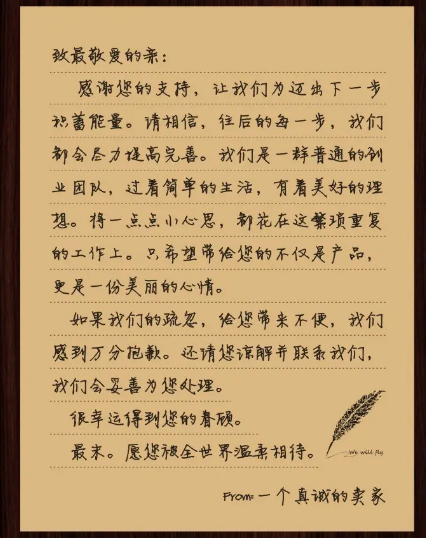 致最敬爱的亲：
感谢您的支持，让我们为迈出下一步
积蓄能量。请相信，往后的每一步，我们
都会尽力提高完善。我们是一群普通的创
业团队，过着简单的生活，有着美好的理
想。将一点点小心思，都花在这繁琐重复
的工作上。只希望带给您的不仅是产品，
更是一份美丽的心情。
如果我们的疏忽，给您带来不便，我们
感到万分抱歉。还请您谅解并联系我们，
我们会妥善为您处理。
很幸运得到您的眷顾。
最末。愿您被全世界温柔相待。
We will fly
From: 一个真诚的卖家